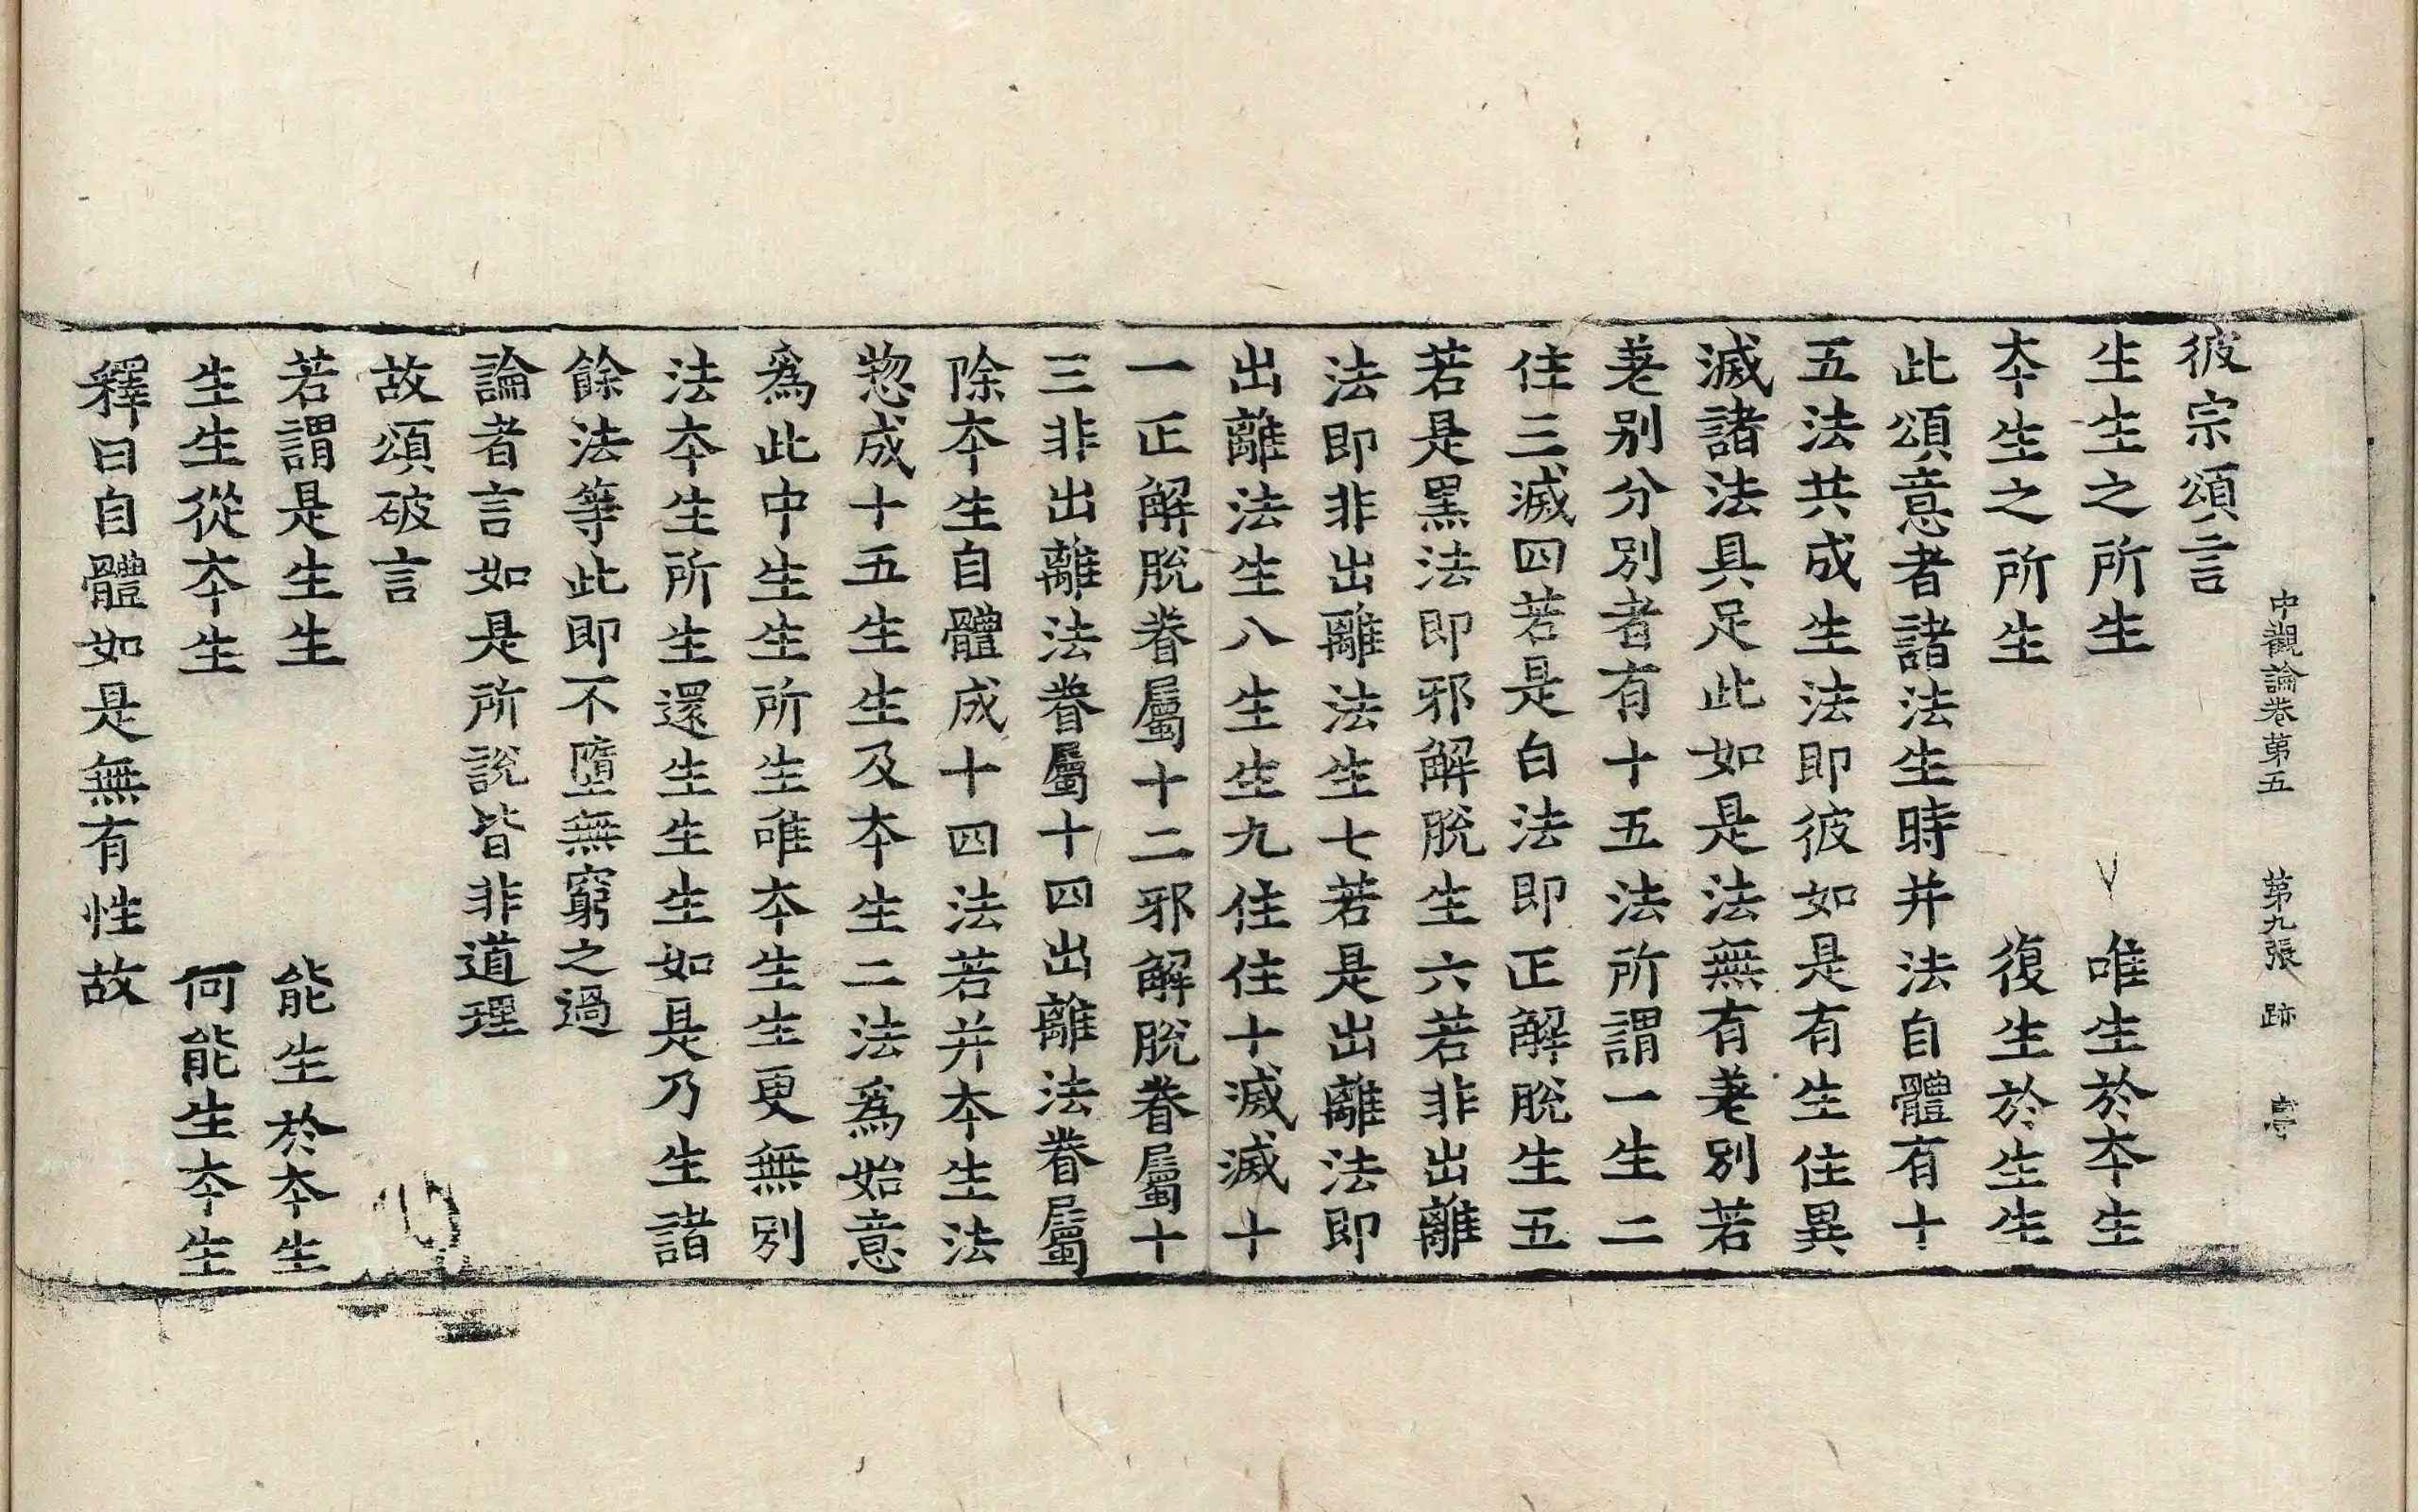 中觀論卷第五 第九張 跡
彼宗頌言
生生之所生 唯生於夲生
夲生之所生 復生於生生
此頌意者諸法生時并法自體有十
五法共成生法即彼如是有生住異
滅諸法具足此如是法無有差別若
差別分別者有十五法所謂一生二
住三滅四若是白法即正解脫生五
若是黑法即邪解脫生六若非出離
法即非出離法生七若是出離法即
出離法生八生生九住住十滅滅十
一正解脫眷屬十二邪解脫眷屬十
三非出離法眷屬十四出離法眷屬
除夲生自體成十四法若并夲生法
惣成十五生生及夲生二法為始意
為此中生生所生唯夲生生更無別
法夲生所生還生生生如是乃生諸
餘法等此即不墮無窮之過
論者言如是所說皆非道理
故頌破言
若謂是生生 能生於夲生
生生從夲生 何能生夲生
釋曰自體如是無有性故